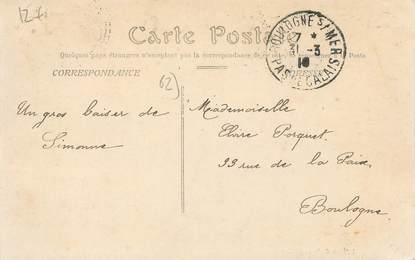 12f
Carte Postale
Quelques pays étrangers n'acceptent pas la correspondance de
Poste)
CORRESPONDANCE
BOULOGNE S/MER
7 *
31 - 3
10
PAS DE CALAIS
(2)
Un gros baiser de
Simonne
Mademoiselle
Elvire Porquet.
33 rue de la Paix.
Boulogne.